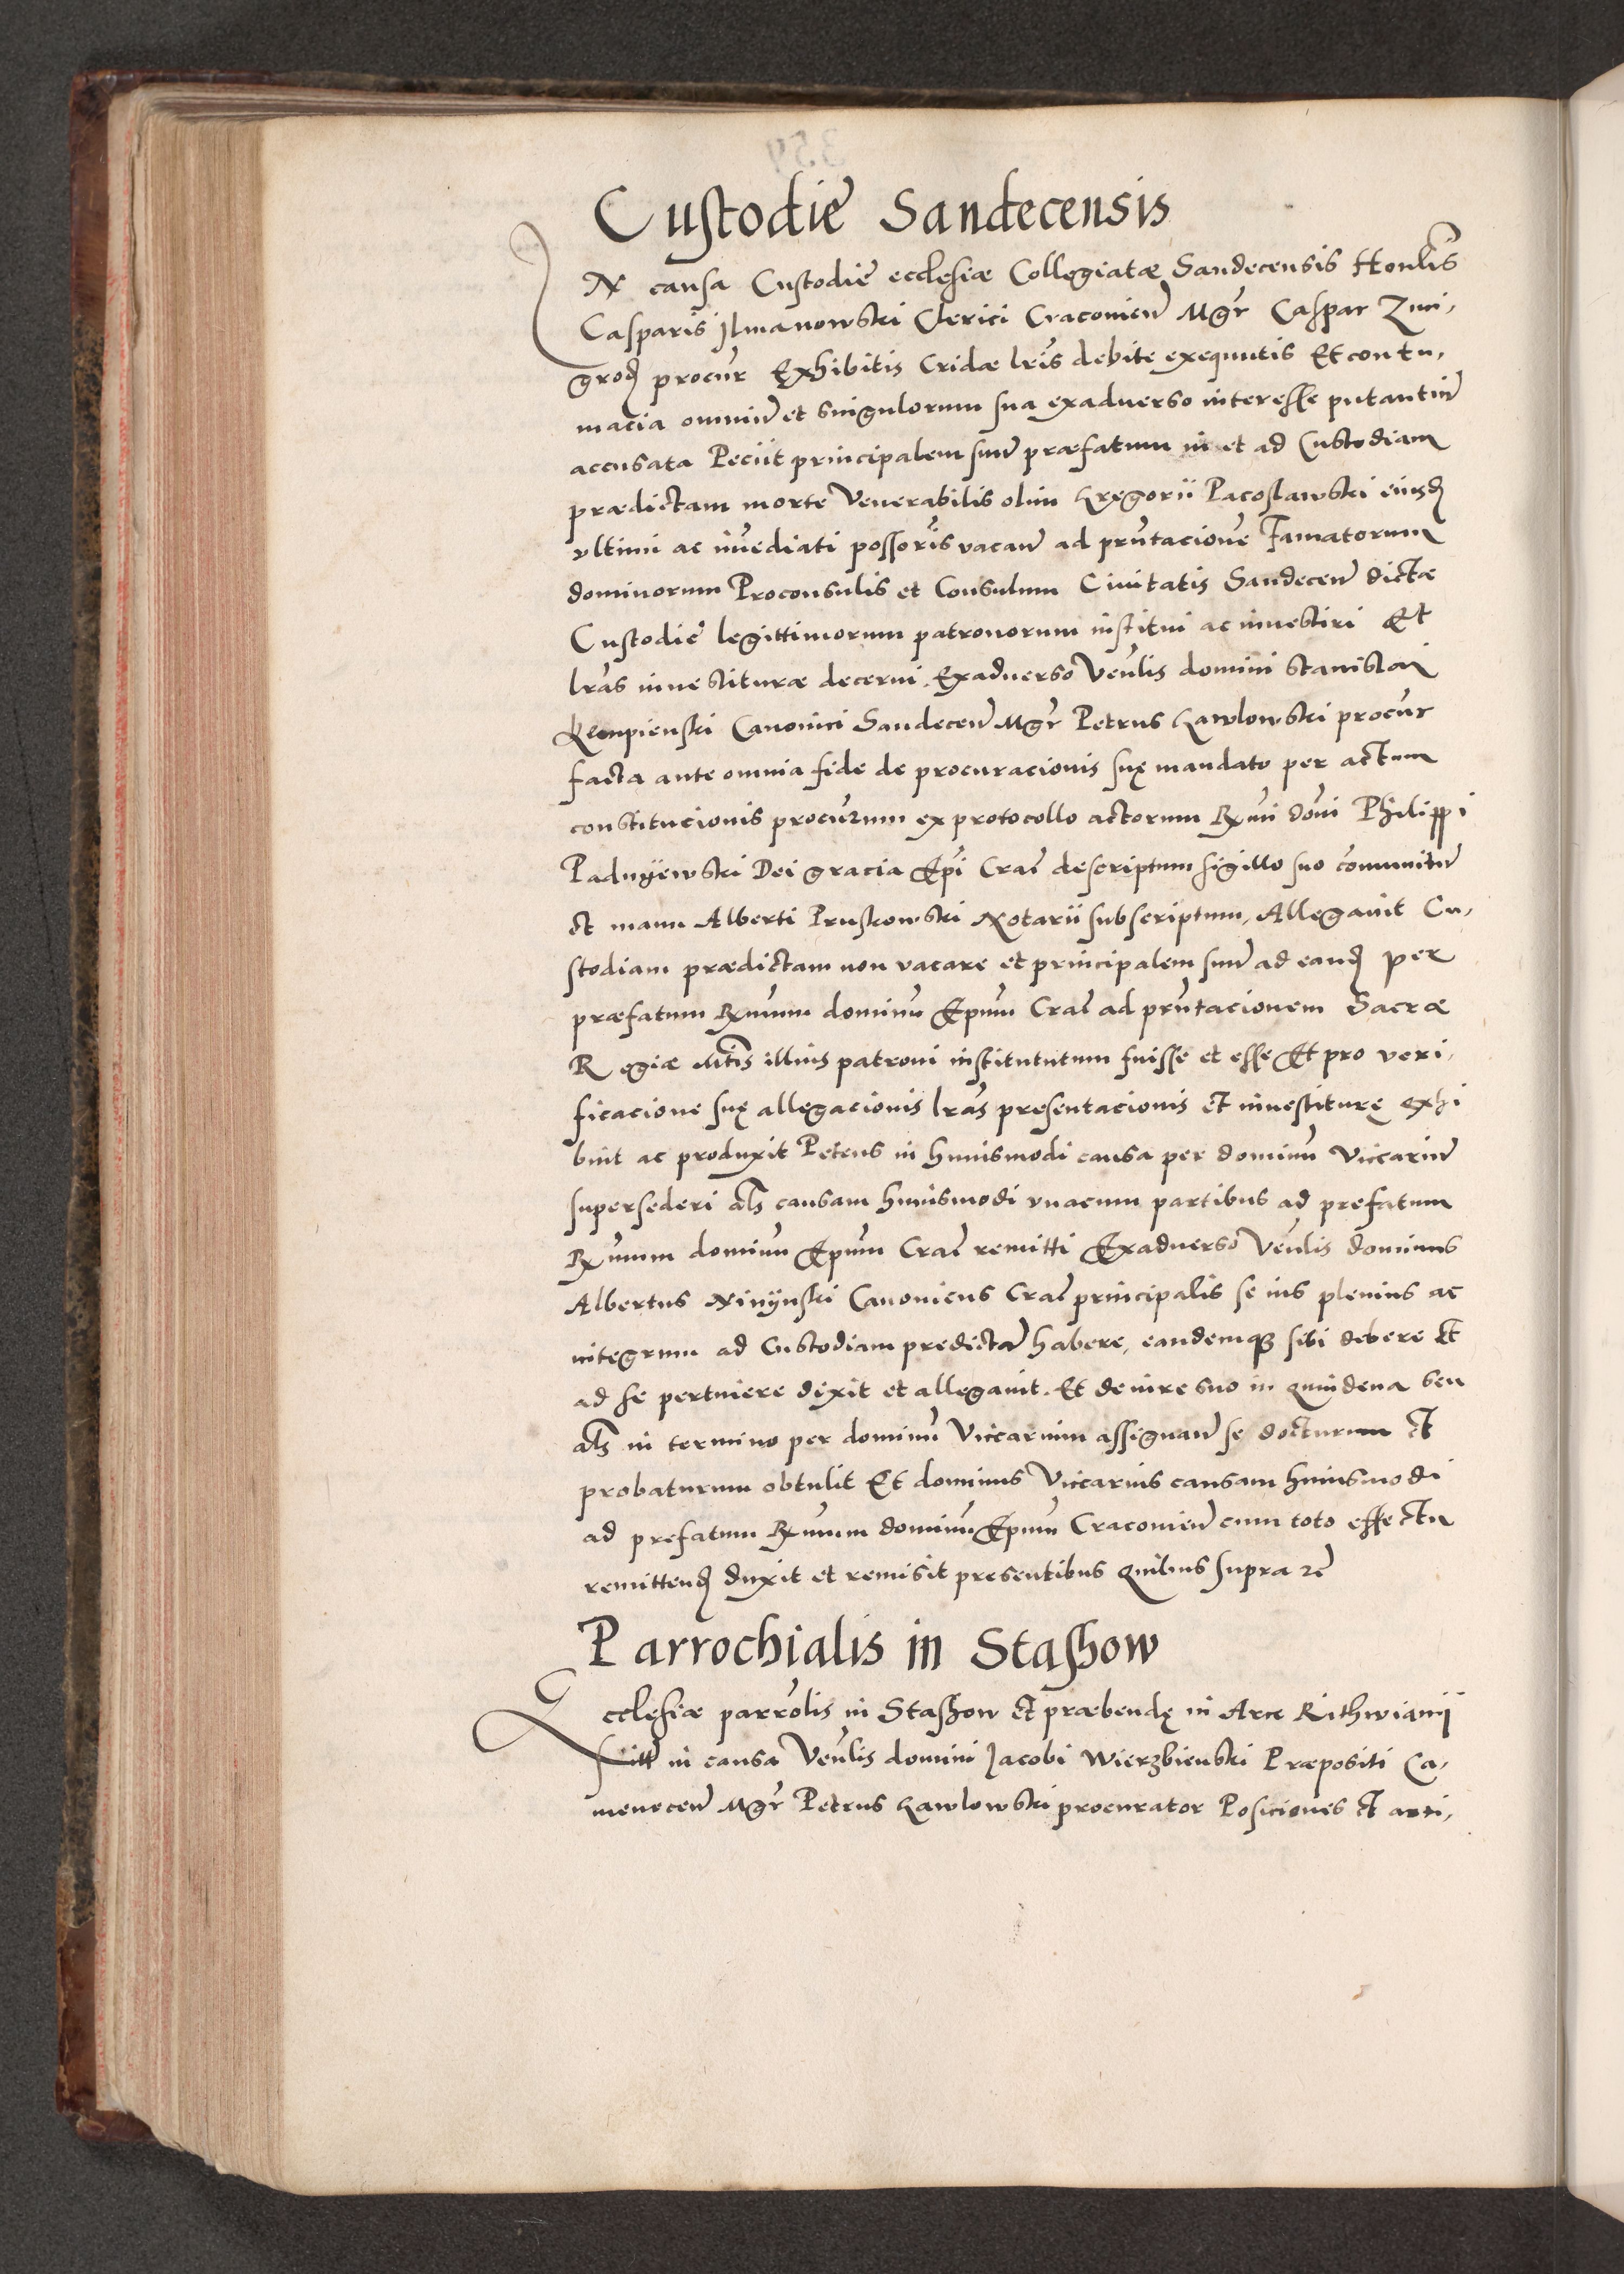 Custodie Sandecensis
IN causa Custodie ecclesiæ Collegiatæ Sandecensis Honlis
Casparis Ilmanowski Clerici Cracovien Mgr Caspar Zmi,
grod procur Exhibitis Cridæ lris debite exequutis Et contu,
macia omniu et singulorum sua exadverso interesse putantiu
accusata Peciit principalem suu præfatum in et ad Custodiam
prædictam morte Venerabilis olim Gregorii Pacoslawski eiusd
vltimi ac imediati possoris vacan ad pntacione Famatorum
dominorum Proconsulis et Consulum Civitatis Sandecen dictæ
Custodie legittimorum patronorum institui ac investiri Et
lras investituræ decerni. Exadverso Venlis domini Stanislai
Kempienski Canonici Sandecen Mgr Petrus Gawlowski procur
facta ante omnia fide de procuracionis suę mandato per actum
constitucionis procurum ex protocollo actorum Rxmi domi Philippi
Padnÿewski Dei gracia Epi Crac descriptum sigillo suo comunitu
et manu Alberti Pruskowski Notarii subscriptum, Allegavit Cu,
stodiam prædictam non vacare et principalem suu ad eand per
præfatum Rxmum dominu Epum Crac ad pntacionem Sacræ
Regiæ Mtis illius patroni institututum fuisse et esse Et pro veri,
ficacione suę allegacionis lras presentacionis et investiturę exhi
buit ac produxit Petens in huiusmodi causa per dominu Viccariu
supersederi als causam huiusmodi vnacum partibus ad prefatum
Rxmum dominu Epum Crac remitti Exadverso Venlis dominus
Albertus Ninÿnski Canonicus Crac principalis se ius plenius ac
integrum ad Custodiam predicta habere, eandemque sibi debere et
ad se pertinere dixit et allegavit. Et de iure suo in quindena seu
als in termino per dominu Viccarium assignan se docturum et
probaturum obtulit Et dominus Viccarius causam huiusmodi
ad prefatum Rxmum dominu Epum Cracovien cum toto effectu
remittend duxit et remisit presentibus quibus supra rc
Parrochialis in Stashow
Ecclesiæ parrolis in Stashow et præbendę in Arce Rithwianÿ
sitt in causa Venlis domini Jacobi Wierzbienski Præpositi Ca,
menecen Mgr Petrus Gawlowski procurator Posiciones et arti,